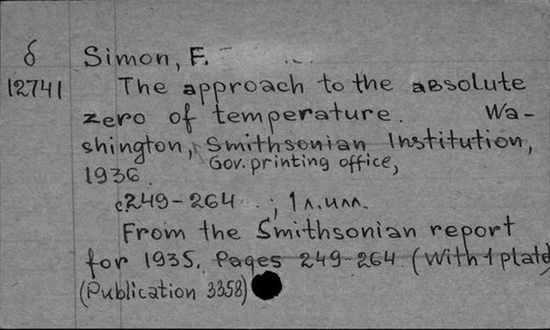 б Simon, F.
12741 The approach to the absolute
zero of temperature. Wa-
shington, Smithsonian Institution,
Gov. printing office,
1936.
с.249-264 . ; 1 л.илл.
From the Smithsonian report
for 1935. Pages 249-264 (With 1 plate)
(Publication 3358)